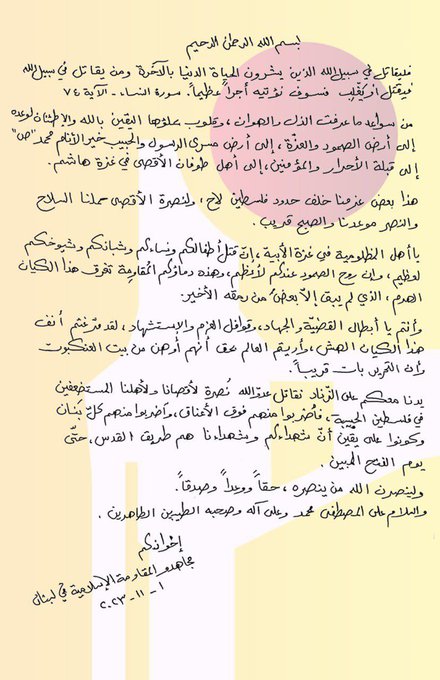 بسم الله الرحمن الرحيم
فليقاتل في سبيل الله الذين يشرون الحياة الدنيا بالآخرة ومن يقاتل في سبيل الله
فيقتل أو يَغْلِب فسوف نؤتيه أجراً عظيماً. سورة النساء - الآية ٧٤
من سواعد ما عرفت الذل والهوان، وقلوب علؤها اليقين بالله والإطمئنان لوعده
إلى أرض الصمود والعزّة، إلى أرض مسرى الرسول والحبيب خير الأنام محمد "ص"
إلى قبلة الأحرار والمؤمنين، إلى أهل طوفان الأقصى في غزة هاشم.
هذا بعض عزمنا خلف حدود فلسطين لاح، ولنصرة الأقصى حملنا السلاح
والنصر موعدنا والصبح قريب.
يا أهل المظلومية في غزة الأبية، إنّ قتل أطفالكم ونساءكم وشبانكم وشيوخكم
لعظيم، وإن روح الصمود عندكم لأعظم، وهذه دماؤكم المُقاوِمة تغرق هذا الكيان
الهرم، الذي لم يبقَ إلاّ بعضٌ من رمقه الأخير.
وأنتم يا أبطال القضيّة والجهاد، وقوافل العزم والإستشهاد، لقد مرّغتم أنف
هذا الكيان الهش، وأريتم العالم بحق أنهم أوهن من بيت العنكبوت
وأن التحرير بات قريباً.
يدنا معكم على الزّناد نقاتل عدوّ الله نُصرةً لأقصانا ولأهلنا المستضعفين
في فلسطين الحبيبة، فاضربوا منهم فوق الأعناق، واضربوا منهم كلّ بَنان
وكونوا على يقين أنّ شهداءكم وشهداءنا هم طريق القدس، حتّى
يوم الفتح المبين.
ولينصرن الله من ينصره، حقاً ووعداً وصدقاً.
والسلام على المصطفى محمد وعلى آله وصحبه الطيبين الطاهرين.
إخوانكم
مجاهدو المقاومة الإسلامية في لبنان
١ - ١١ - ٢٠٢٣